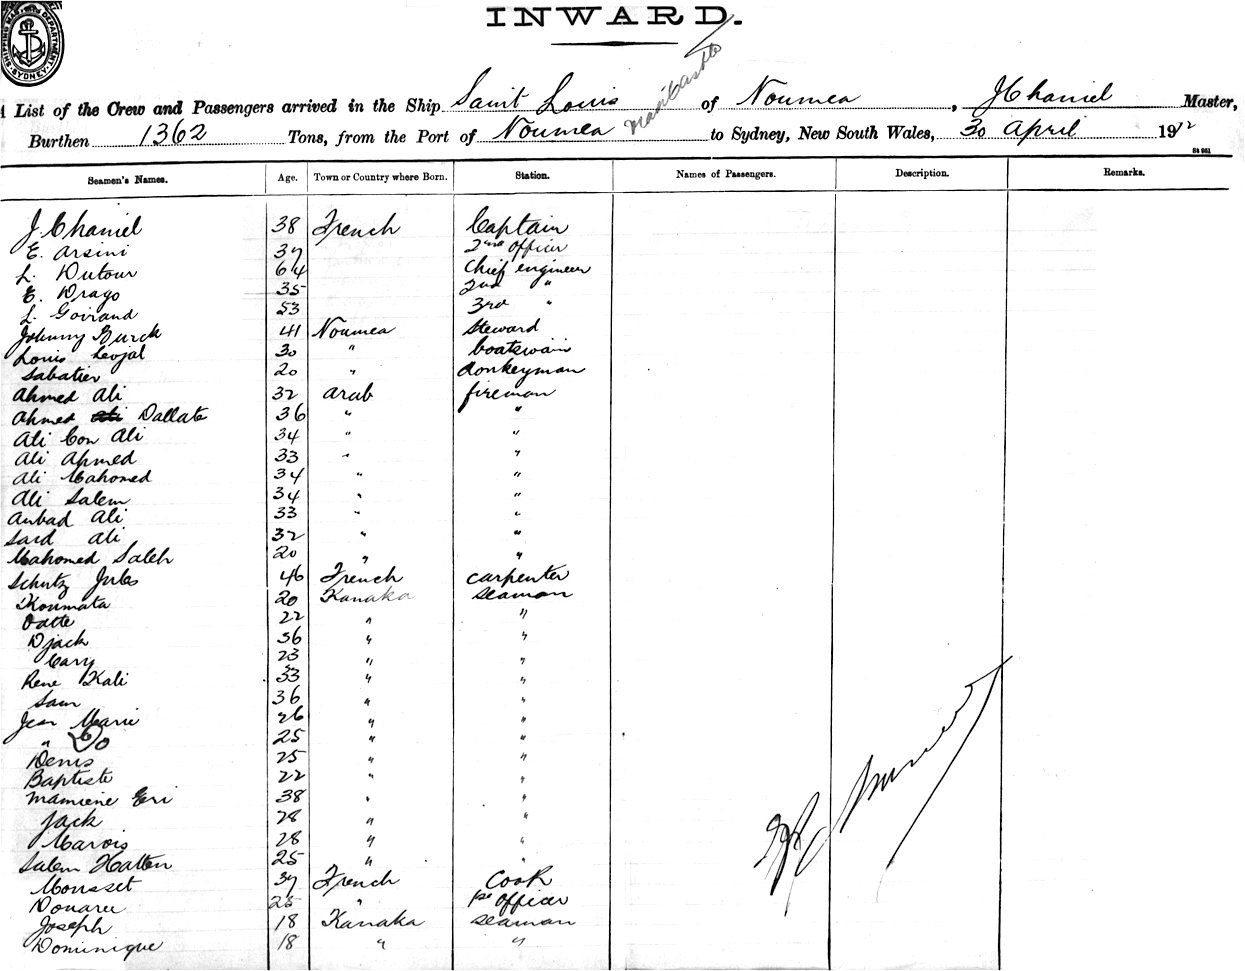 SHIPPING MASTER'S DEPARTMENT. SYDNEY.
INWARD.
A List of the Crew and Passengers arrived in the Ship Saint Louis of Noumea, J Chaniel Master,
Burthen 1362 Tons, from the Port of Noumea to Sydney, New South Wales, 30 April 1912
St 961
Seamen's Names. Age. Town or Country where Born. Station. Names of Passengers. Description. Remarks.
J Chaniel 38 French Captain
E. Arsini 37 2nd Officer
L. Dutour 64 Chief engineer
E. Drago 35 2nd "
L. Goirand 53 3rd "
Johnny Burck 41 Noumea Steward
Louis Levjal 30 " boatswain
Sabatier 20 " donkeyman
Ahmed Ali 32 Arab fireman
Ahmed Ali Dallata 36 " "
Ali Con Ali 34 " "
Ali Ahmed 33 " "
Ali Mahomed 34 " "
Ali Salem 34 " "
Aubad Ali 33 " "
Said Ali 32 " "
Mahomed Saleh 20 " "
Schutz Jules 46 French carpenter
Koumata 20 Kanaka seaman
Oatte 22 " "
Djack 36 " "
Cary 23 " "
Rene Kali 33 " "
Sam 36 " "
Jean Marie 26 " "
" Do 25 " "
Denis 25 " "
Baptiste 22 " "
Mamiene Eri 38 " "
Jack 28 " "
Marois 28 " "
Salem Hatten 25 " "
Mousset 37 French Cook
Douaru 25 " 1st officer
Joseph 18 Kanaka seaman
Dominique 18 " "